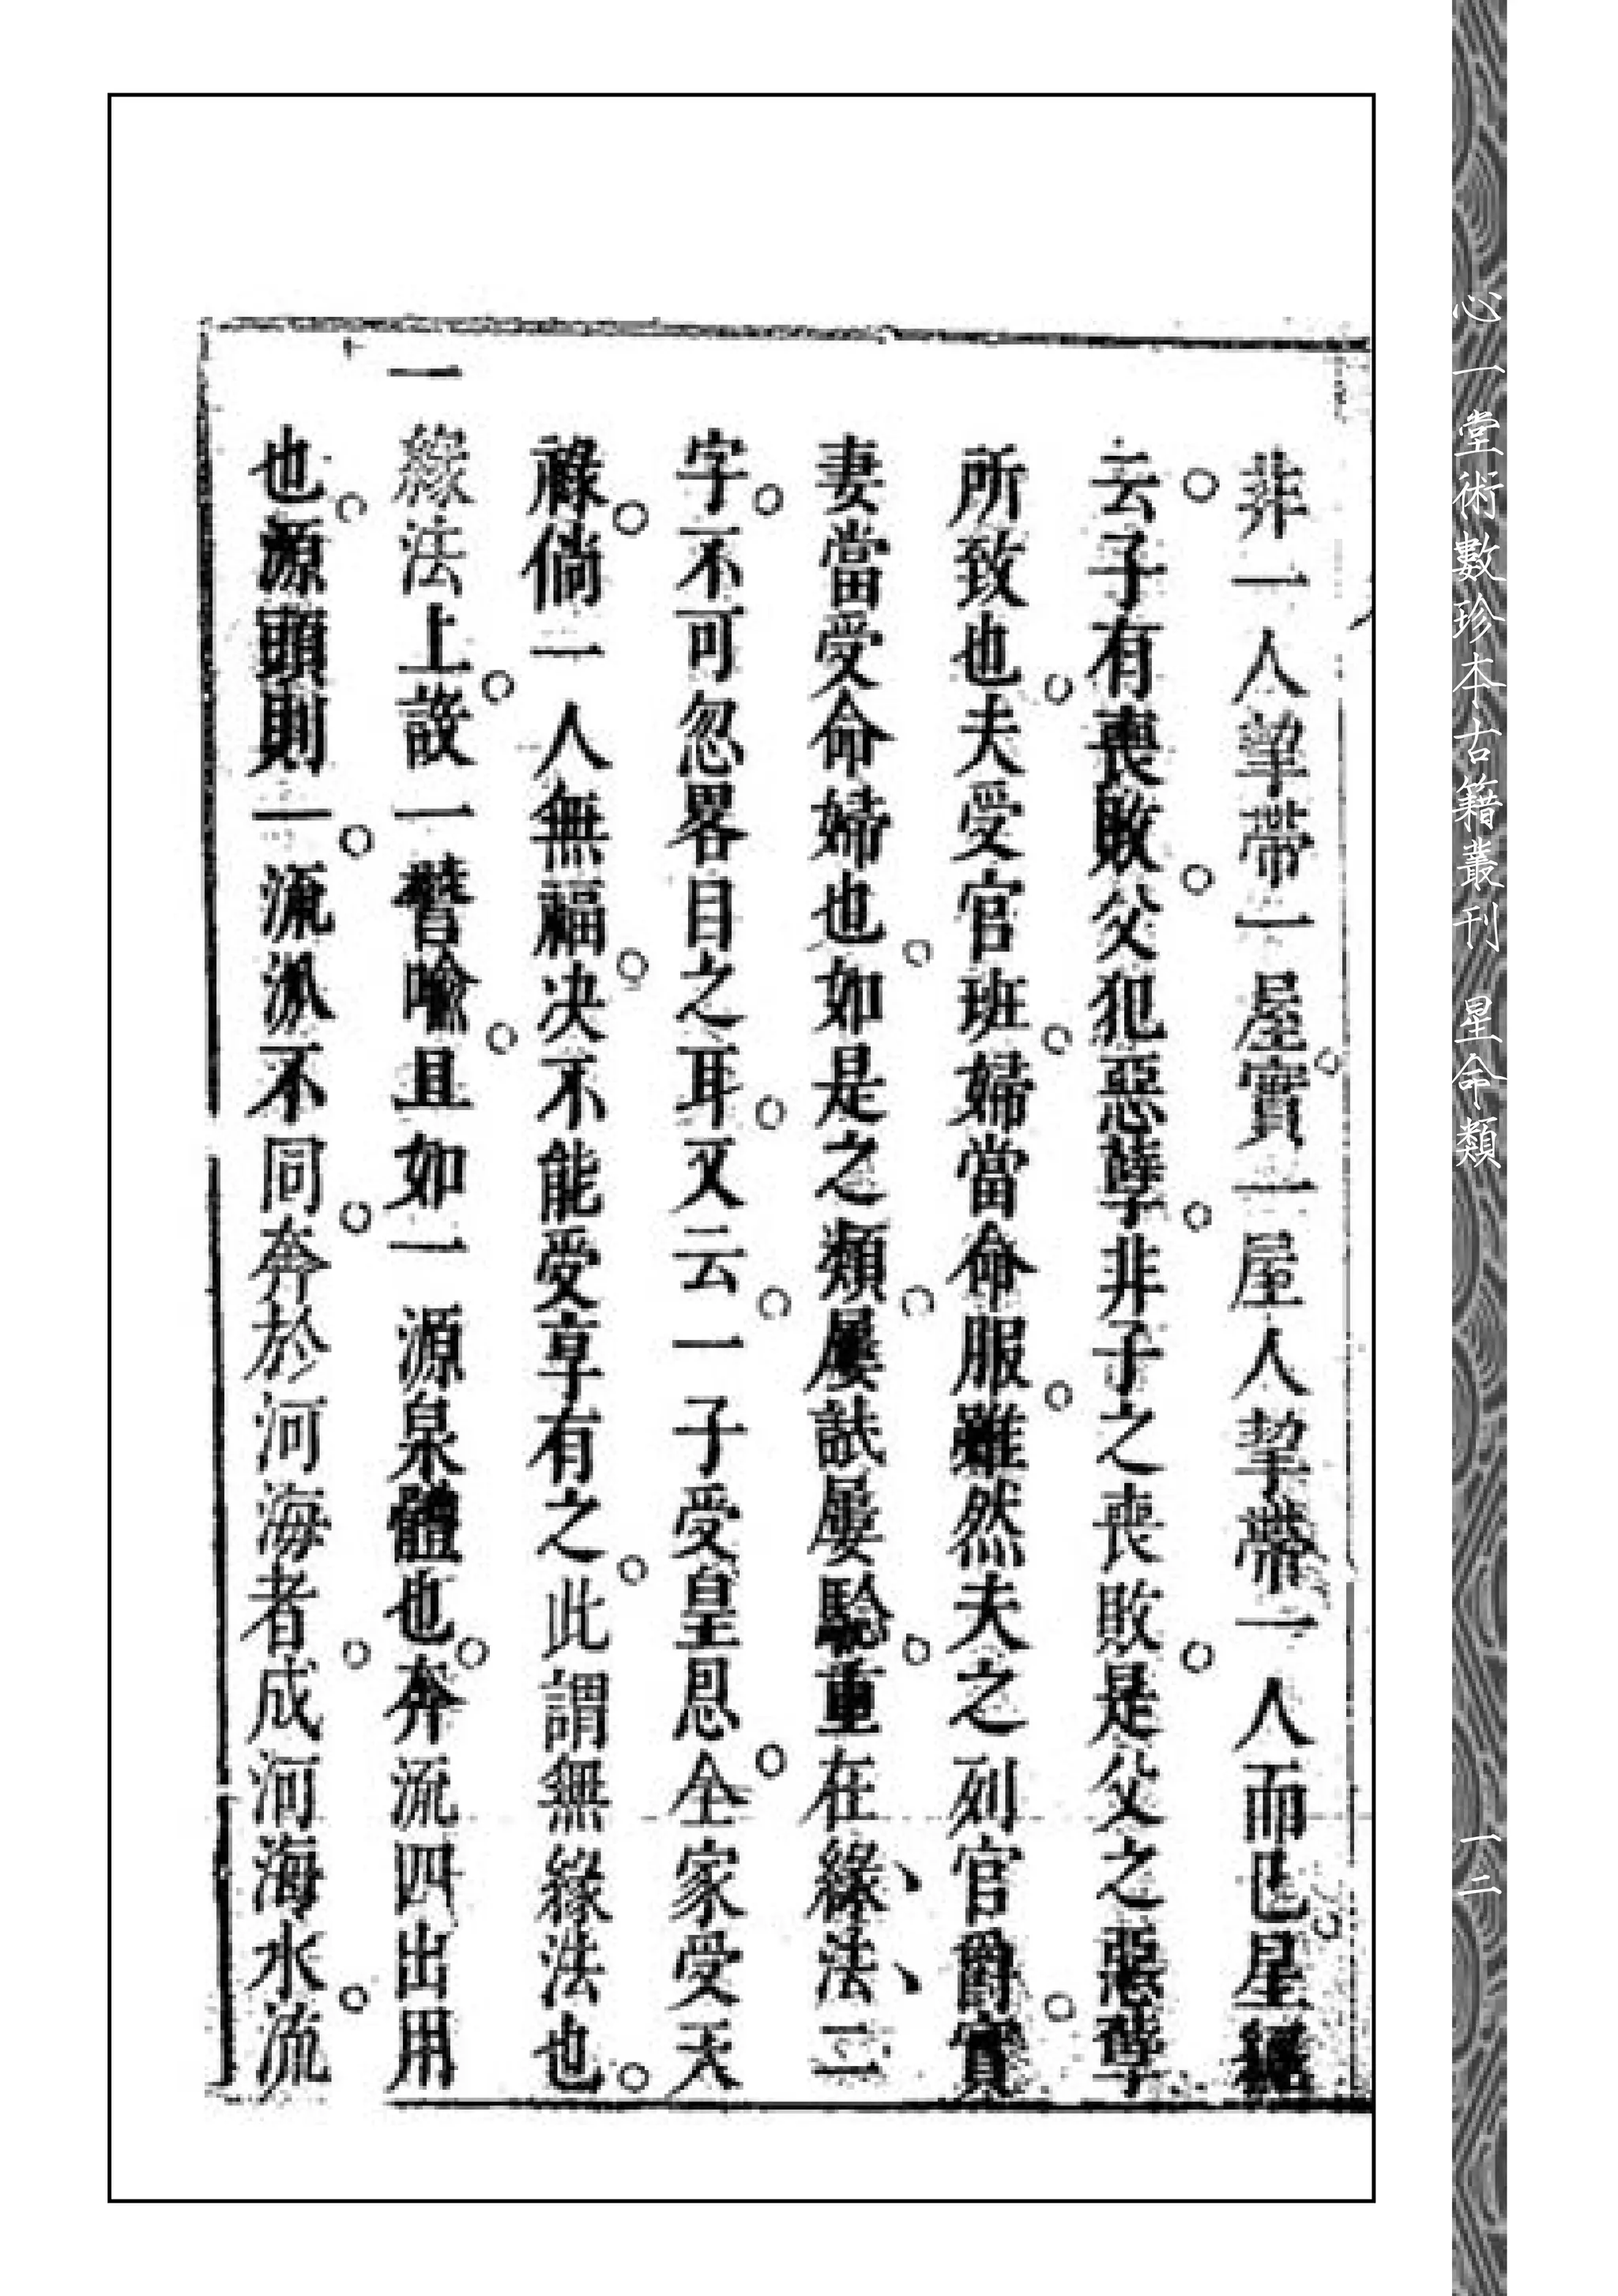 非一人挈帶一屋實一屋人挈帶一人而已星經
云子有喪敗父犯惡孽非子之喪敗是父之惡孽
所致也夫受官班婦當命服雖然夫之列官爵實
妻當受命婦也如是之類屢試屢驗重在緣法二
字不可忽畧目之耳又云一子受皇恩全家受天
祿倘一人無福决不能受享有之此謂無緣法也
一緣法上設一譬喻且如一源泉體也奔流四出用
也源頭則一流派不同奔於河海者成河海水流
心一堂術數珍本古籍叢刊 星命類
一二